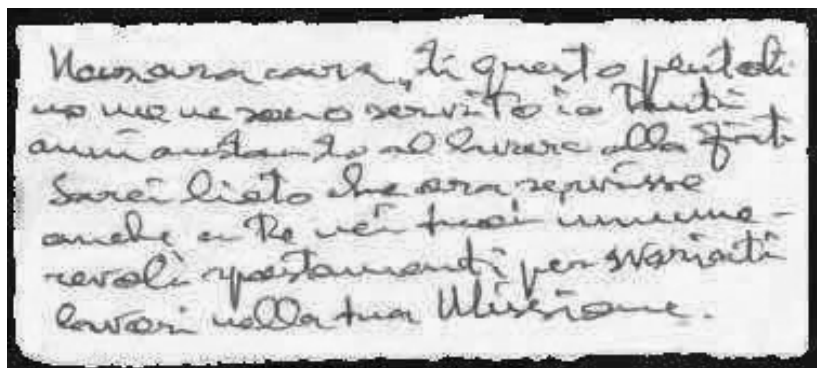 cara, di questo pentoli
no me ne sono servito io tanti
anni andando al lavoro alla
Sarei lieto che ora servisse
anche a te nei tuoi innume-
revoli spostamenti per svariati
lavori nella tua Missione.